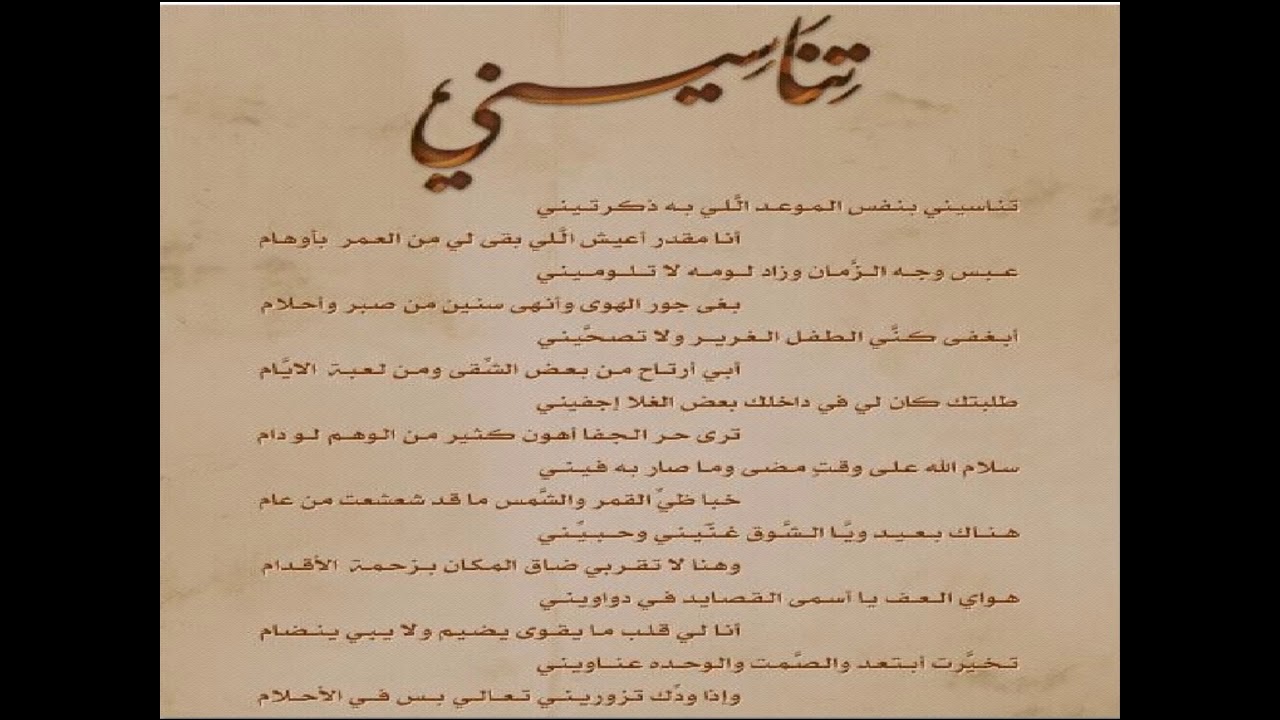 تِنَاسِيني
تَناسيني بنفس الموعد الَّلي به ذكرتيني
أنا مقدر أعيش الَّلي بقى لي من العمر بأوهام
عبس وجه الزَّمان وزاد لومه لا تلوميني
بغى جور الهوى وأنهى سنين من صبر وأحلام
أبغفى كنَّي الطفل الغرير ولا تصحَّيني
أبي أرتاح من بعض الشِّقى ومن لعبة الايَّام
طلبتك كان لي في داخلك بعض الغلا إجفيني
ترى حر الجفا أهون كثير من الوهم لو دام
سلام الله على وقتٍ مضى وما صار به فيني
خبا ظيِّ القمر والشَّمس ما قد شعشعت من عام
هناك بعيد ويَّا الشَّوق غنَّيني وحبيِّني
وهنا لا تقربي ضاق المكان بزحمة الأقدام
هواي العف يا أسمى القصايد في دواويني
أنا لي قلب ما يقوى يضيم ولا يبي ينضام
تخيَّرت أبتعد والصَّمت والوحده عناويني
وإذا ودِّك تزوريني تعالي بس في الأحلام